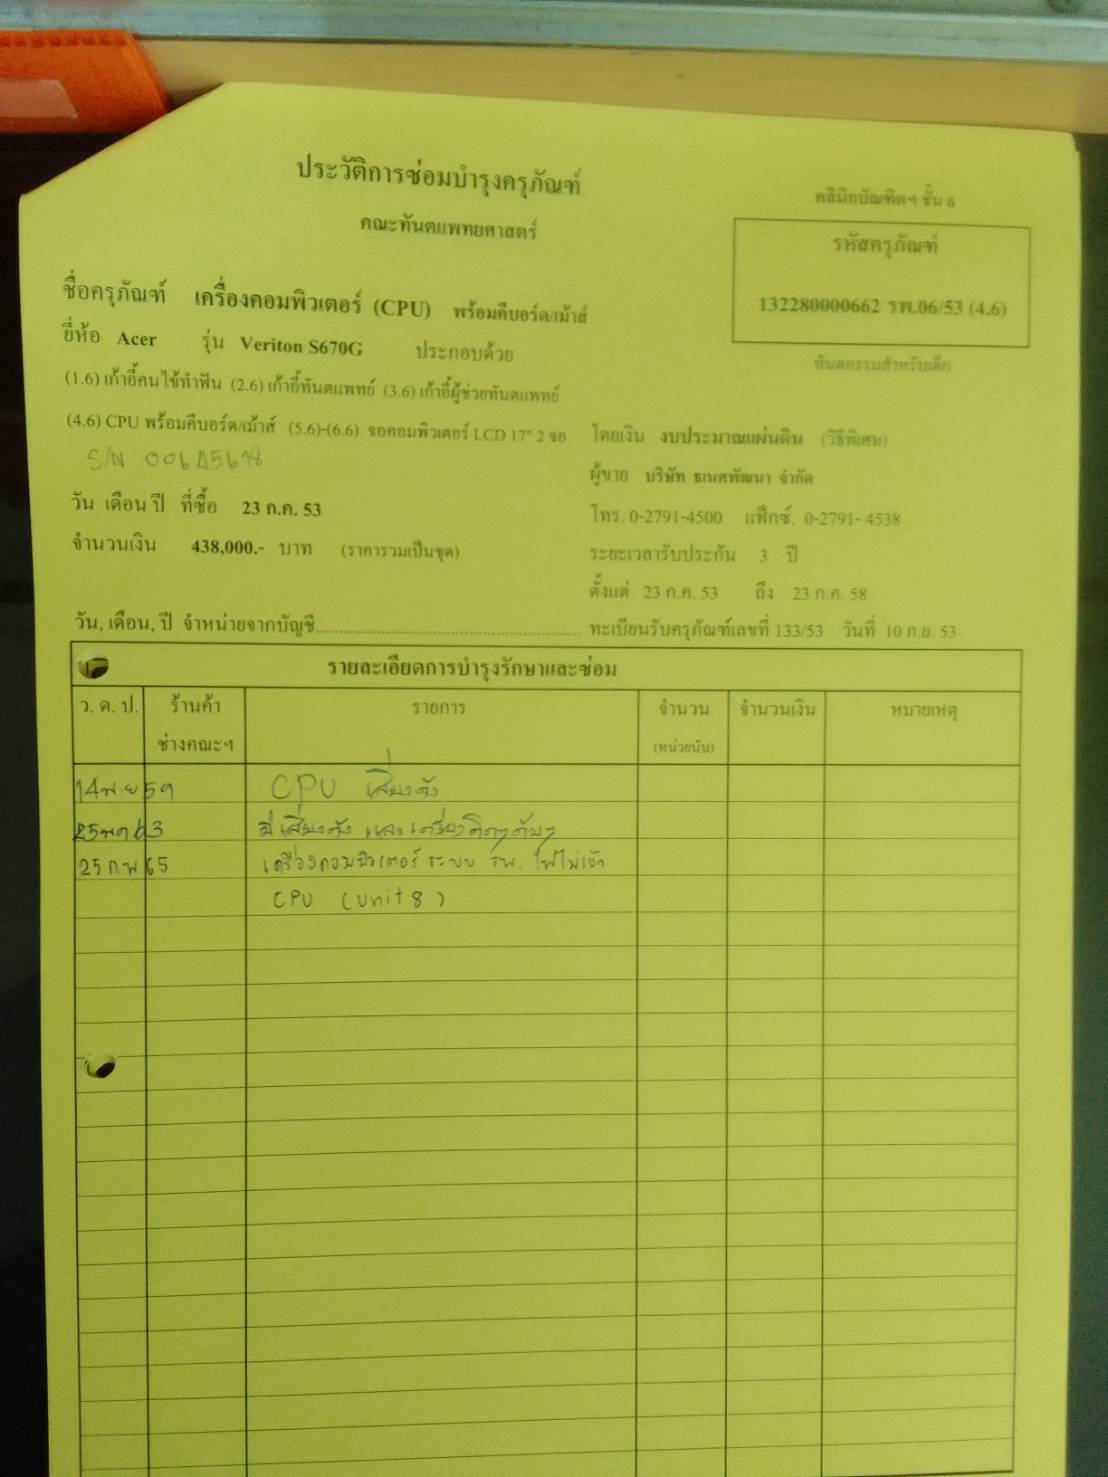 ประวัติการซ่อมบำรุงครุภัณฑ์
คณะทันตแพทยศาสตร์
คลินิกบัณฑิตฯ ชั้น 6
รหัสครุภัณฑ์
132280000662 รพ.06/53 (4.6)
ทันตกรรมสำหรับเด็ก
ชื่อครุภัณฑ์ เครื่องคอมพิวเตอร์ (CPU) พร้อมคีบอร์ด/เม้าส์
ยี่ห้อ Acer รุ่น Veriton S670G ประกอบด้วย
(1.6) เก้าอี้คนไข้ทำฟัน (2.6) เก้าอี้ทันตแพทย์ (3.6) เก้าอี้ผู้ช่วยทันตแพทย์
(4.6) CPU พร้อมคีบอร์ด/เม้าส์ (5.6)-(6.6) จอคอมพิวเตอร์ LCD 17" 2 จอ
โดยเงิน งบประมาณแผ่นดิน (วิธีพิเศษ)
S/N
ผู้ขาย บริษัท ธเนศพัฒนา จำกัด
วัน เดือน ปี ที่ซื้อ 23 ก.ค. 53
โทร. 0-2791-4500 แฟ็กซ์. 0-2791- 4538
จำนวนเงิน 438,000.- บาท (ราคารวมเป็นชุด)
ระยะเวลารับประกัน 3 ปี
ตั้งแต่ 23 ก.ค. 53 ถึง 23 ก.ค. 58
วัน, เดือน, ปี จำหน่ายจากบัญชี............................................................
ทะเบียนรับครุภัณฑ์เลขที่ 133/53 วันที่ 10 ก.ย. 53
รายละเอียดการบำรุงรักษาและซ่อม
ว. ด. ป. ร้านค้า รายการ จำนวน จำนวนเงิน หมายเหตุ
ช่างคณะฯ (หน่วยนับ)
14 พ.ย 59 CPU เสียงดัง
25 63 มีเสียงดัง และเครื่องติดๆดับๆ
25 ก.พ 65 เครื่องคอมพิวเตอร์ ระบบ รพ. ไฟไม่เข้า
CPU (unit 8)